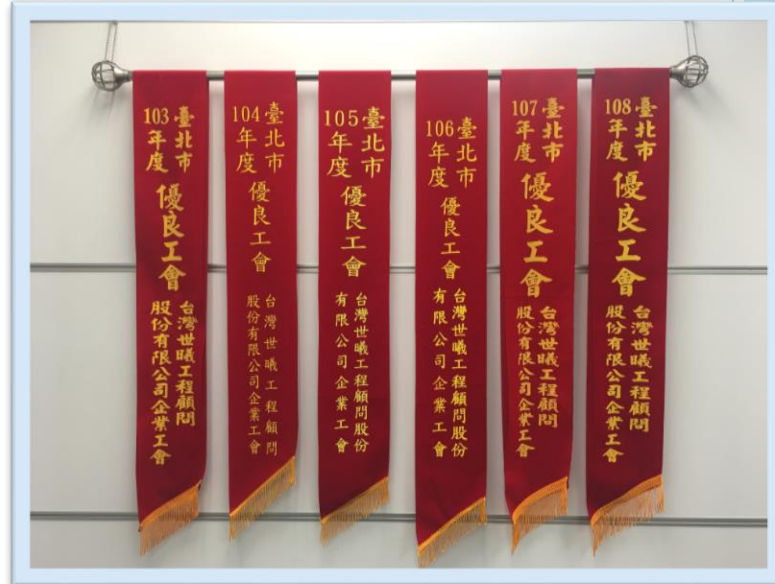 臺北市
103年度
優良工會
台灣世曦工程顧問
股份有限公司企業工會
臺北市
104年度
優良工會
台灣世曦工程顧問
股份有限公司企業工會
臺北市
105年度
優良工會
台灣世曦工程顧問股份
有限公司企業工會
臺北市
106年度
優良工會
台灣世曦工程顧問股份
有限公司企業工會
臺北市
107年度
優良工會
台灣世曦工程顧問
股份有限公司企業工會
臺北市
108年度
優良工會
台灣世曦工程顧問
股份有限公司企業工會